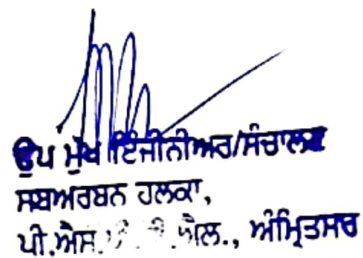 ਉਪ ਮੁੱਖ ਇੰਜੀਨੀਅਰ/ਸੰਚਾਲਣ
ਸਬਅਰਬਨ ਹਲਕਾ,
ਪੀ.ਐਸ. ਐਲ., ਅੰਮ੍ਰਿਤਸਰ